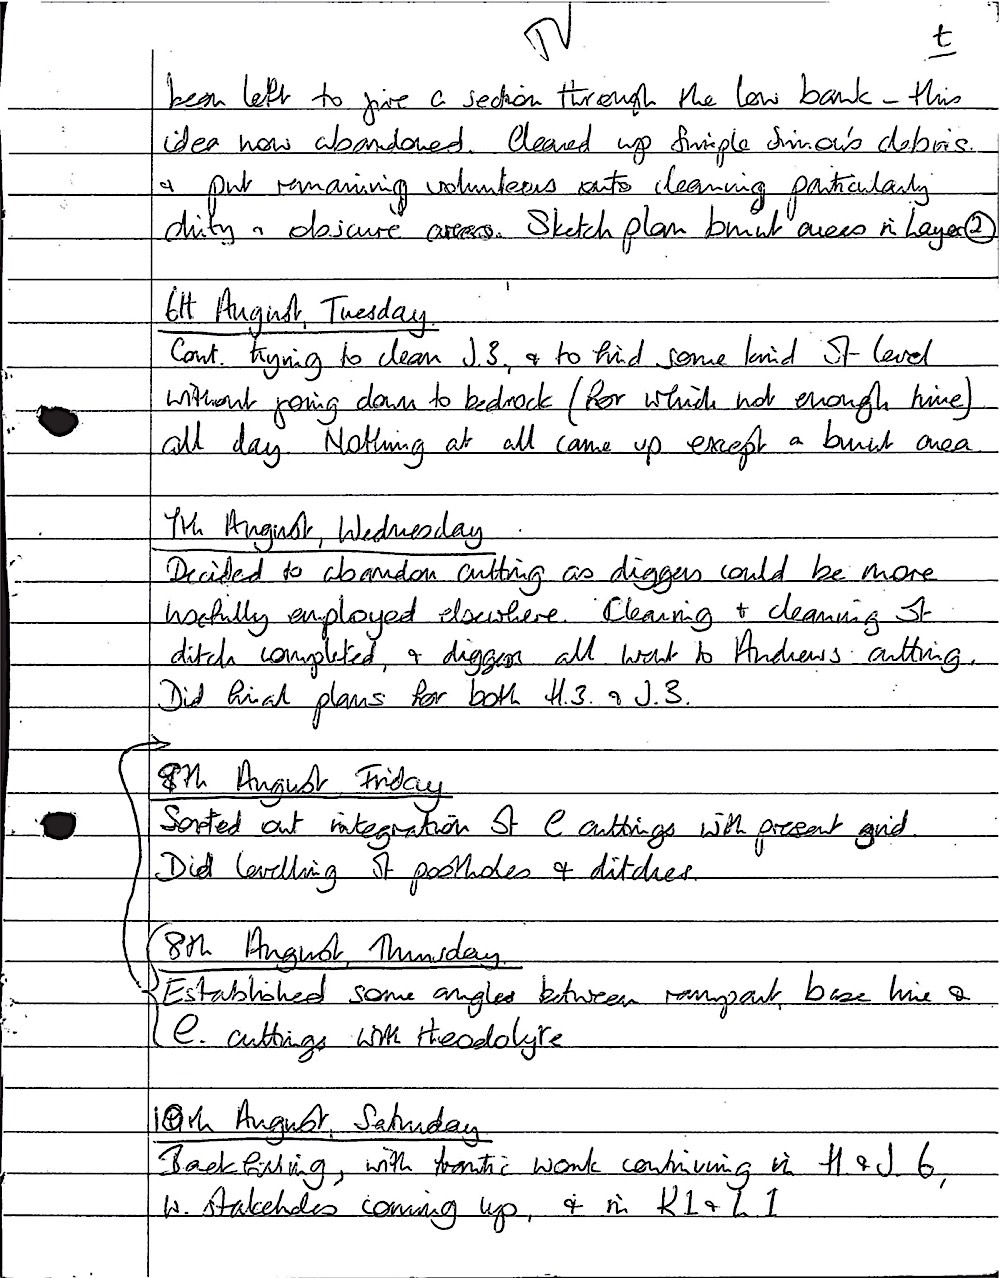 IV
t
been left to give a section through the low bank - this
idea now abandoned. Cleared up Simple Simon's debris.
& put remaining volunteers onto cleaning particularly
dirty & obscure areas. Sketch plan burnt areas in Layer ②
6th August, Tuesday.
Cont. trying to clean J.3, & to find some kind of level
without going down to bedrock (for which not enough time)
all day. Nothing at all came up except a burnt area
7th August, Wednesday
Decided to abandon cutting as diggers could be more
usefully employed elsewhere. Clearing & cleaning of
ditch completed, & diggers all went to Andrews cutting.
Did final plans for both H.3. & J.3.
9th August Friday
Sorted out integration of C cuttings with present grid.
Did levelling of postholes & ditches.
8th August, Thursday.
Established some angles between rampart, base line &
C. cuttings with theodolyte
10th August, Saturday
Backfilling, with frantic work continuing in H & J. 6,
w. stakeholes coming up, & in K1 & L1